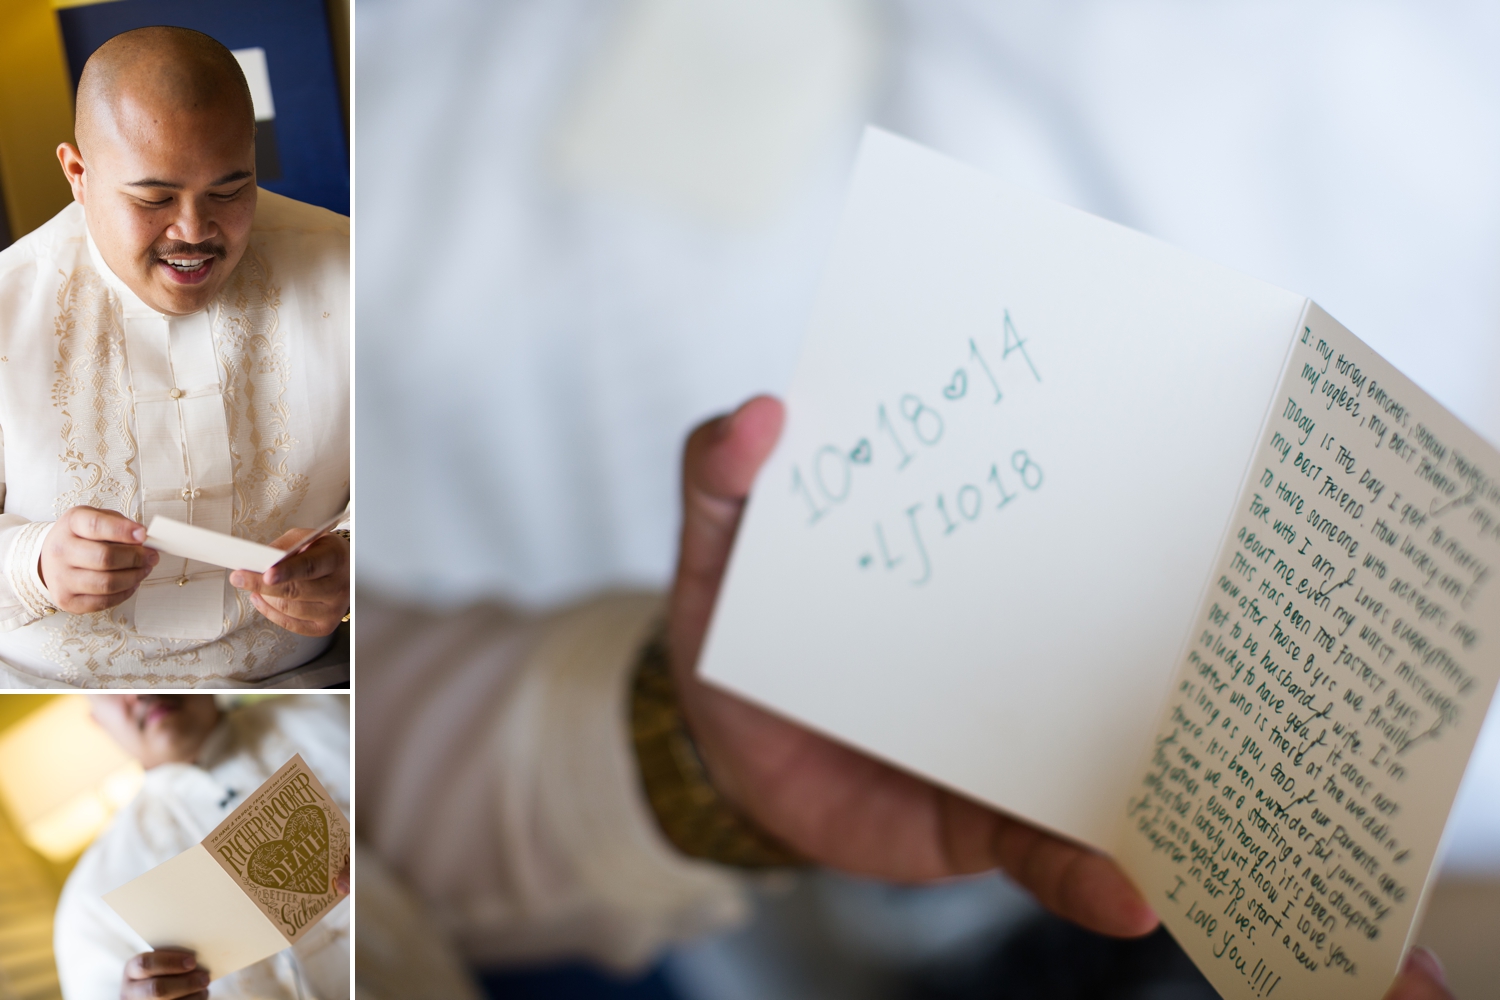 RICHER POORER
DEATH
BETTER
PART
Sickness
10♥18♥14
•LJ1018
II: my Honey Bunches,
my uglee2, my Best Friend,
TODAY IS THE DAY I get to marry
my BEST FRIEND. How lucky am I
TO HAVE someone who accepts me
FOR who I am & Loves everything
about me even my worst mistakes.
THIS HAS BEEN THE FASTEST 8yrs
now after those 8yrs we finally
get to be husband & wife. I'm
so lucky to have you & it does not
matter who is there at the wedding
as long as you, GOD, & our parents are
there. It's been a wonderful journey
& now we are starting a new chapter
even though it's been
lately just know I love you
& I'm so excited to start a new
chapter in our lives.
I Love You!!!!